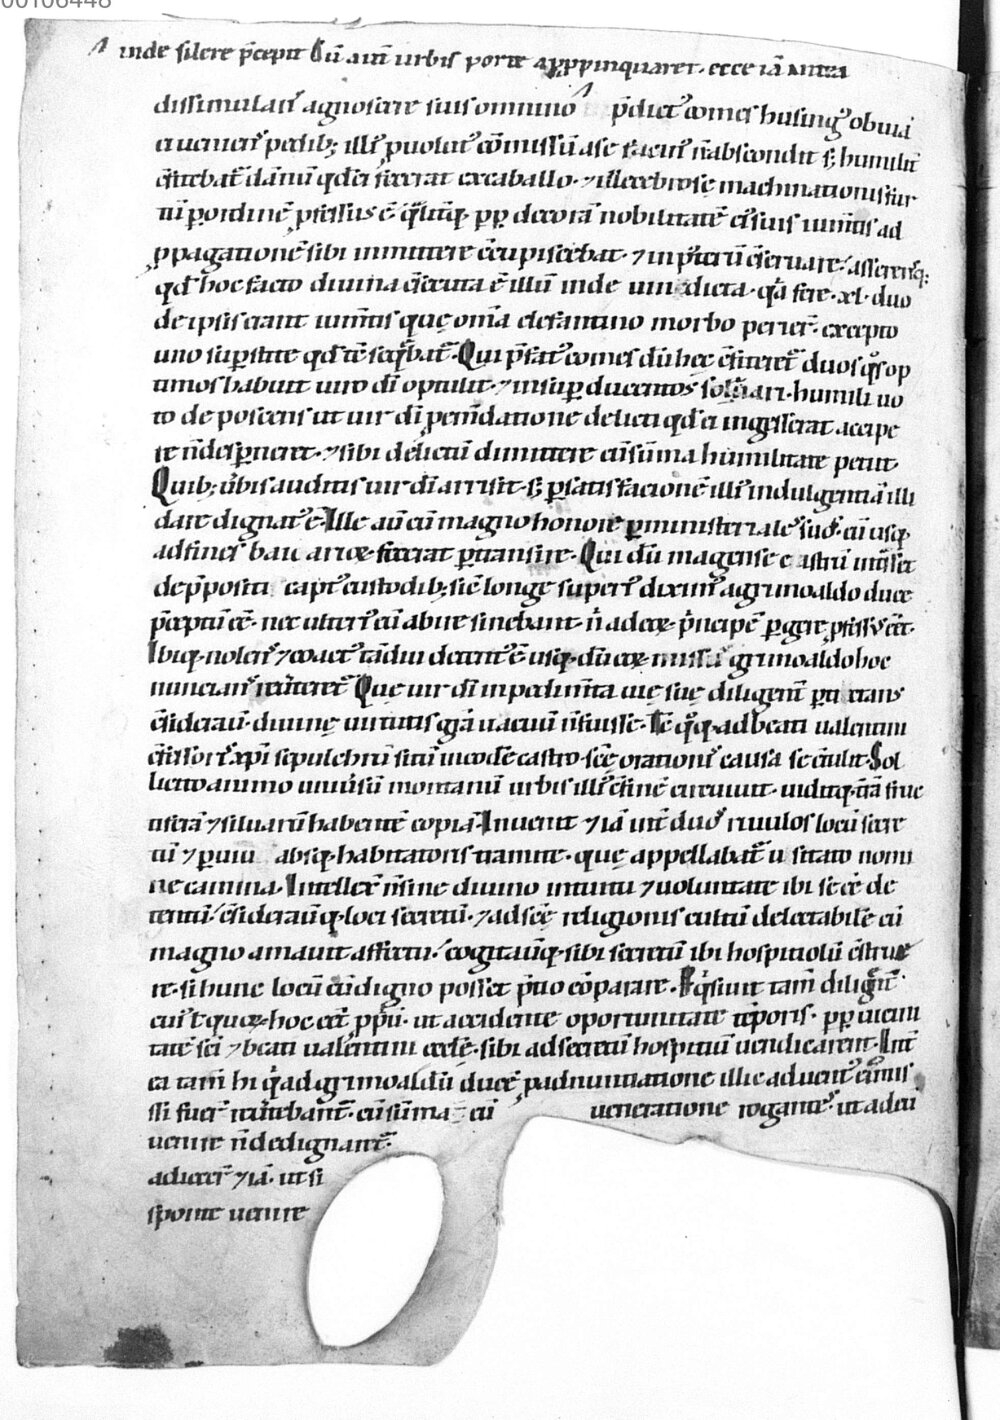 00106448
inde silere p̄cepit Cū autē urbis porte apppinquaret. ecce iā
dissimulans agnoscere suis omnino p̄dict᷒ comes husing᷒ obuiā
ei ueniens pedib; illi᷒ puolut᷒ cōmissū a se facin᷒ n̄ abscondit s; humilit̄
c̄fitebat̄ dānū qd ei fecerat ex caballo. ⁊ illecebrose machinationis fur
tū p ordinē pfessus ē qlitq; pp decorā nobilitatē cū suis iumtis ad
ppagationē sibi inmittere c̄cupiscebat. ⁊ in p᷒terū c̄seruare. asserensq;
qd hoc facto diuina c̄secuta ē illū inde uindicta. qa fere .xl. duo
de ipsis erant iumtis quę om̄ia elefantino morbo perier̄. excepto
uno supstite qd tc̄ seqbat̄. Qui p̄fat᷒ comes dū hec c̄fiteret̄ duos qs op
timos habuit uiro dī optulit. ⁊ insup ducentos solidari. humili uo
to deposcens ut uir dī p em̄datione delicti qd ei ingesserat accipe
re n̄ desp̄neret. ⁊ sibi delictū dimittere cū sūma humilitate petiit.
Quib; ūbis auditis uir dī arrisit. s; p satisfacionē illi᷒ indulgentiā illi
dare dignat᷒ ē. Ille aū cū magno honore p ministeriales suos. eū usq;
ad fines bauuariorꝝ fecerat ptransire. Qui dū magense castrū intrasset
de p̄positi capt᷒ custodib; sic̄ longe superi᷒ dixim᷒ a grimoaldo duce
p̄ceptū ēē. nec ulteri᷒ eū abire sinebant. n̄ ad eorꝝ p̄ncipē pgere pfessus eēt.
Ibiq; nolens ⁊ coact᷒ tādiu detent᷒ ē usq; dū eorꝝ missi grimoaldo hoc
nuncians reūteret̄. Quę uir dī inpedimta uię suę diligent̄ ptractans
c̄siderauit diuinę uirtutis gr̄a uacuū n̄ fuisse. Tc̄ qq; ad beati ualentini
c̄fessoris xp̄i sepulchrū sitū in eodē castro. scē orationis causa se c̄tulit. Sol
licito animo uniūsū montanū urbis illi᷒ c̄finē circuiuit. uiditq; tā fruc
tiferā ⁊ siluarū habentē copiā. Inuenit ⁊ iā int̄ duos riuulos locū secre
tū ⁊ puiū absq; habitatoris tramite. quę appellabat̄ usitato nomi
ne camina. Intellex̄ n̄ sine diuino intuitu ⁊ uoluntate ibi se eē de
tentū. c̄siderauitq; loci secretū. ⁊ ad scē religionis cultū delectabilē eū
magno amauit affectu. cogitauitq; sibi secretū ibi hospitiolū c̄strue
re. si hunc locū c̄digno posset p̄tio cōparare. Reqsiuit tam̄ diligent̄
cui᷒ t quorꝝ hoc eēt ppiū. ut accidente oportunitate tēporis. pp uicini
tatē sci ⁊ beati ualentini eccle. sibi ad secretū hospitiū uendicarent. Int̄
ea tam̄ hi q ad grimoaldū ducē p adnuntiatione illic aduent᷒ ei᷒ mis
si fuer̄ reūtebant̄. cū sūma eū ueneratione rogantes. ut ad eū
uenire n̄ dedignaret̄.
adiecer̄ ⁊iā. ut si
sponte uenire